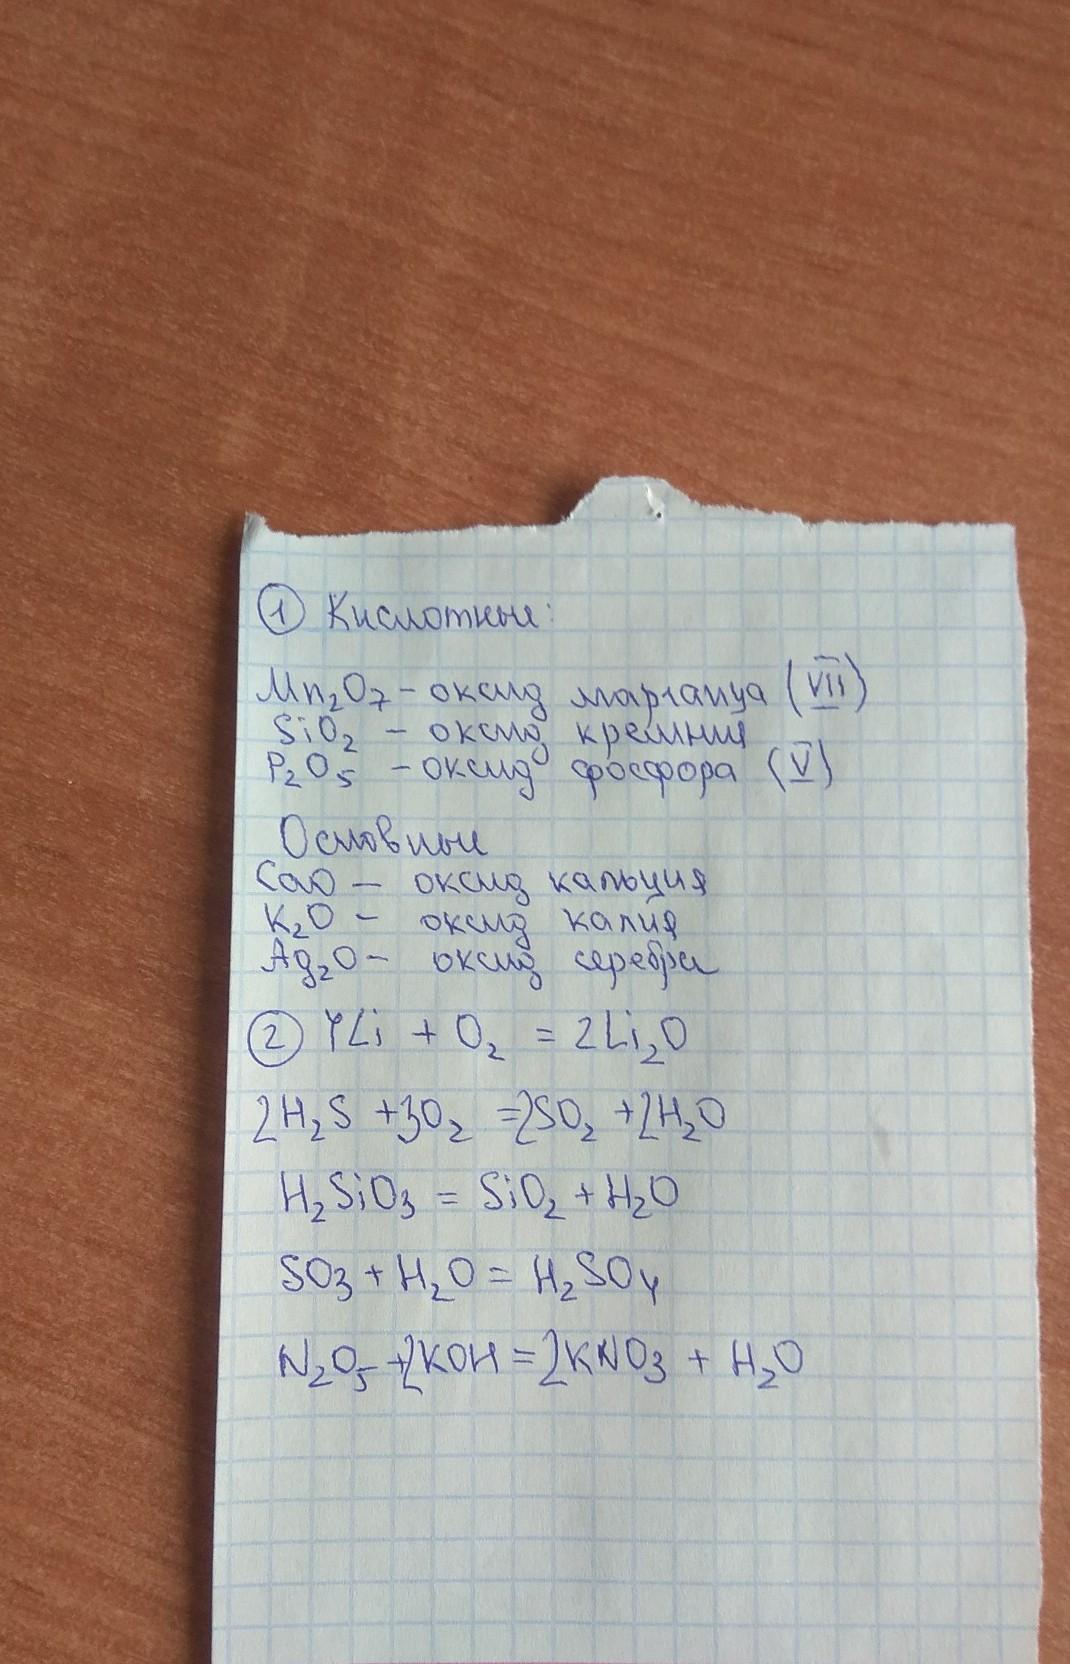 ① Кислотные:
Mn₂O₇ – оксид марганца (VII)
SiO₂ – оксид кремния
P₂O₅ – оксид фосфора (V)
Основные
CaO – оксид кальция
K₂O – оксид калия
Ag₂O – оксид серебра
② 4Li + O₂ = 2Li₂O
2H₂S + 3O₂ = 2SO₂ + 2H₂O
H₂SiO₃ = SiO₂ + H₂O
SO₃ + H₂O = H₂SO₄
N₂O₅ + 2KOH = 2KNO₃ + H₂O